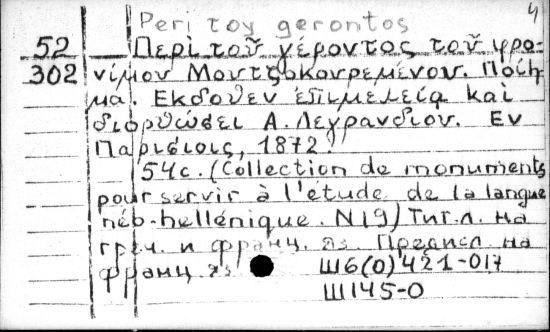 Peri toy gerontos
4
52 Περὶ τοῦ γέροντος τοῦ φρο-
302 νίμου Μουτζοκουρεμένου. Ποίη-
μα. Εκδοθεν ἐπιμελείᾳ καὶ
διορθώσει Α. Λεγρανδίου. Εν
Παρισίοις, 1872.
54с. (Collection de monuments
pour servir à l'étude de la langue
néo-hellénique. N19) Тит.л. на
греч. и франц. яз. Предисл. на
франц. яз.
Ш6(0)421-017
Ш145-0